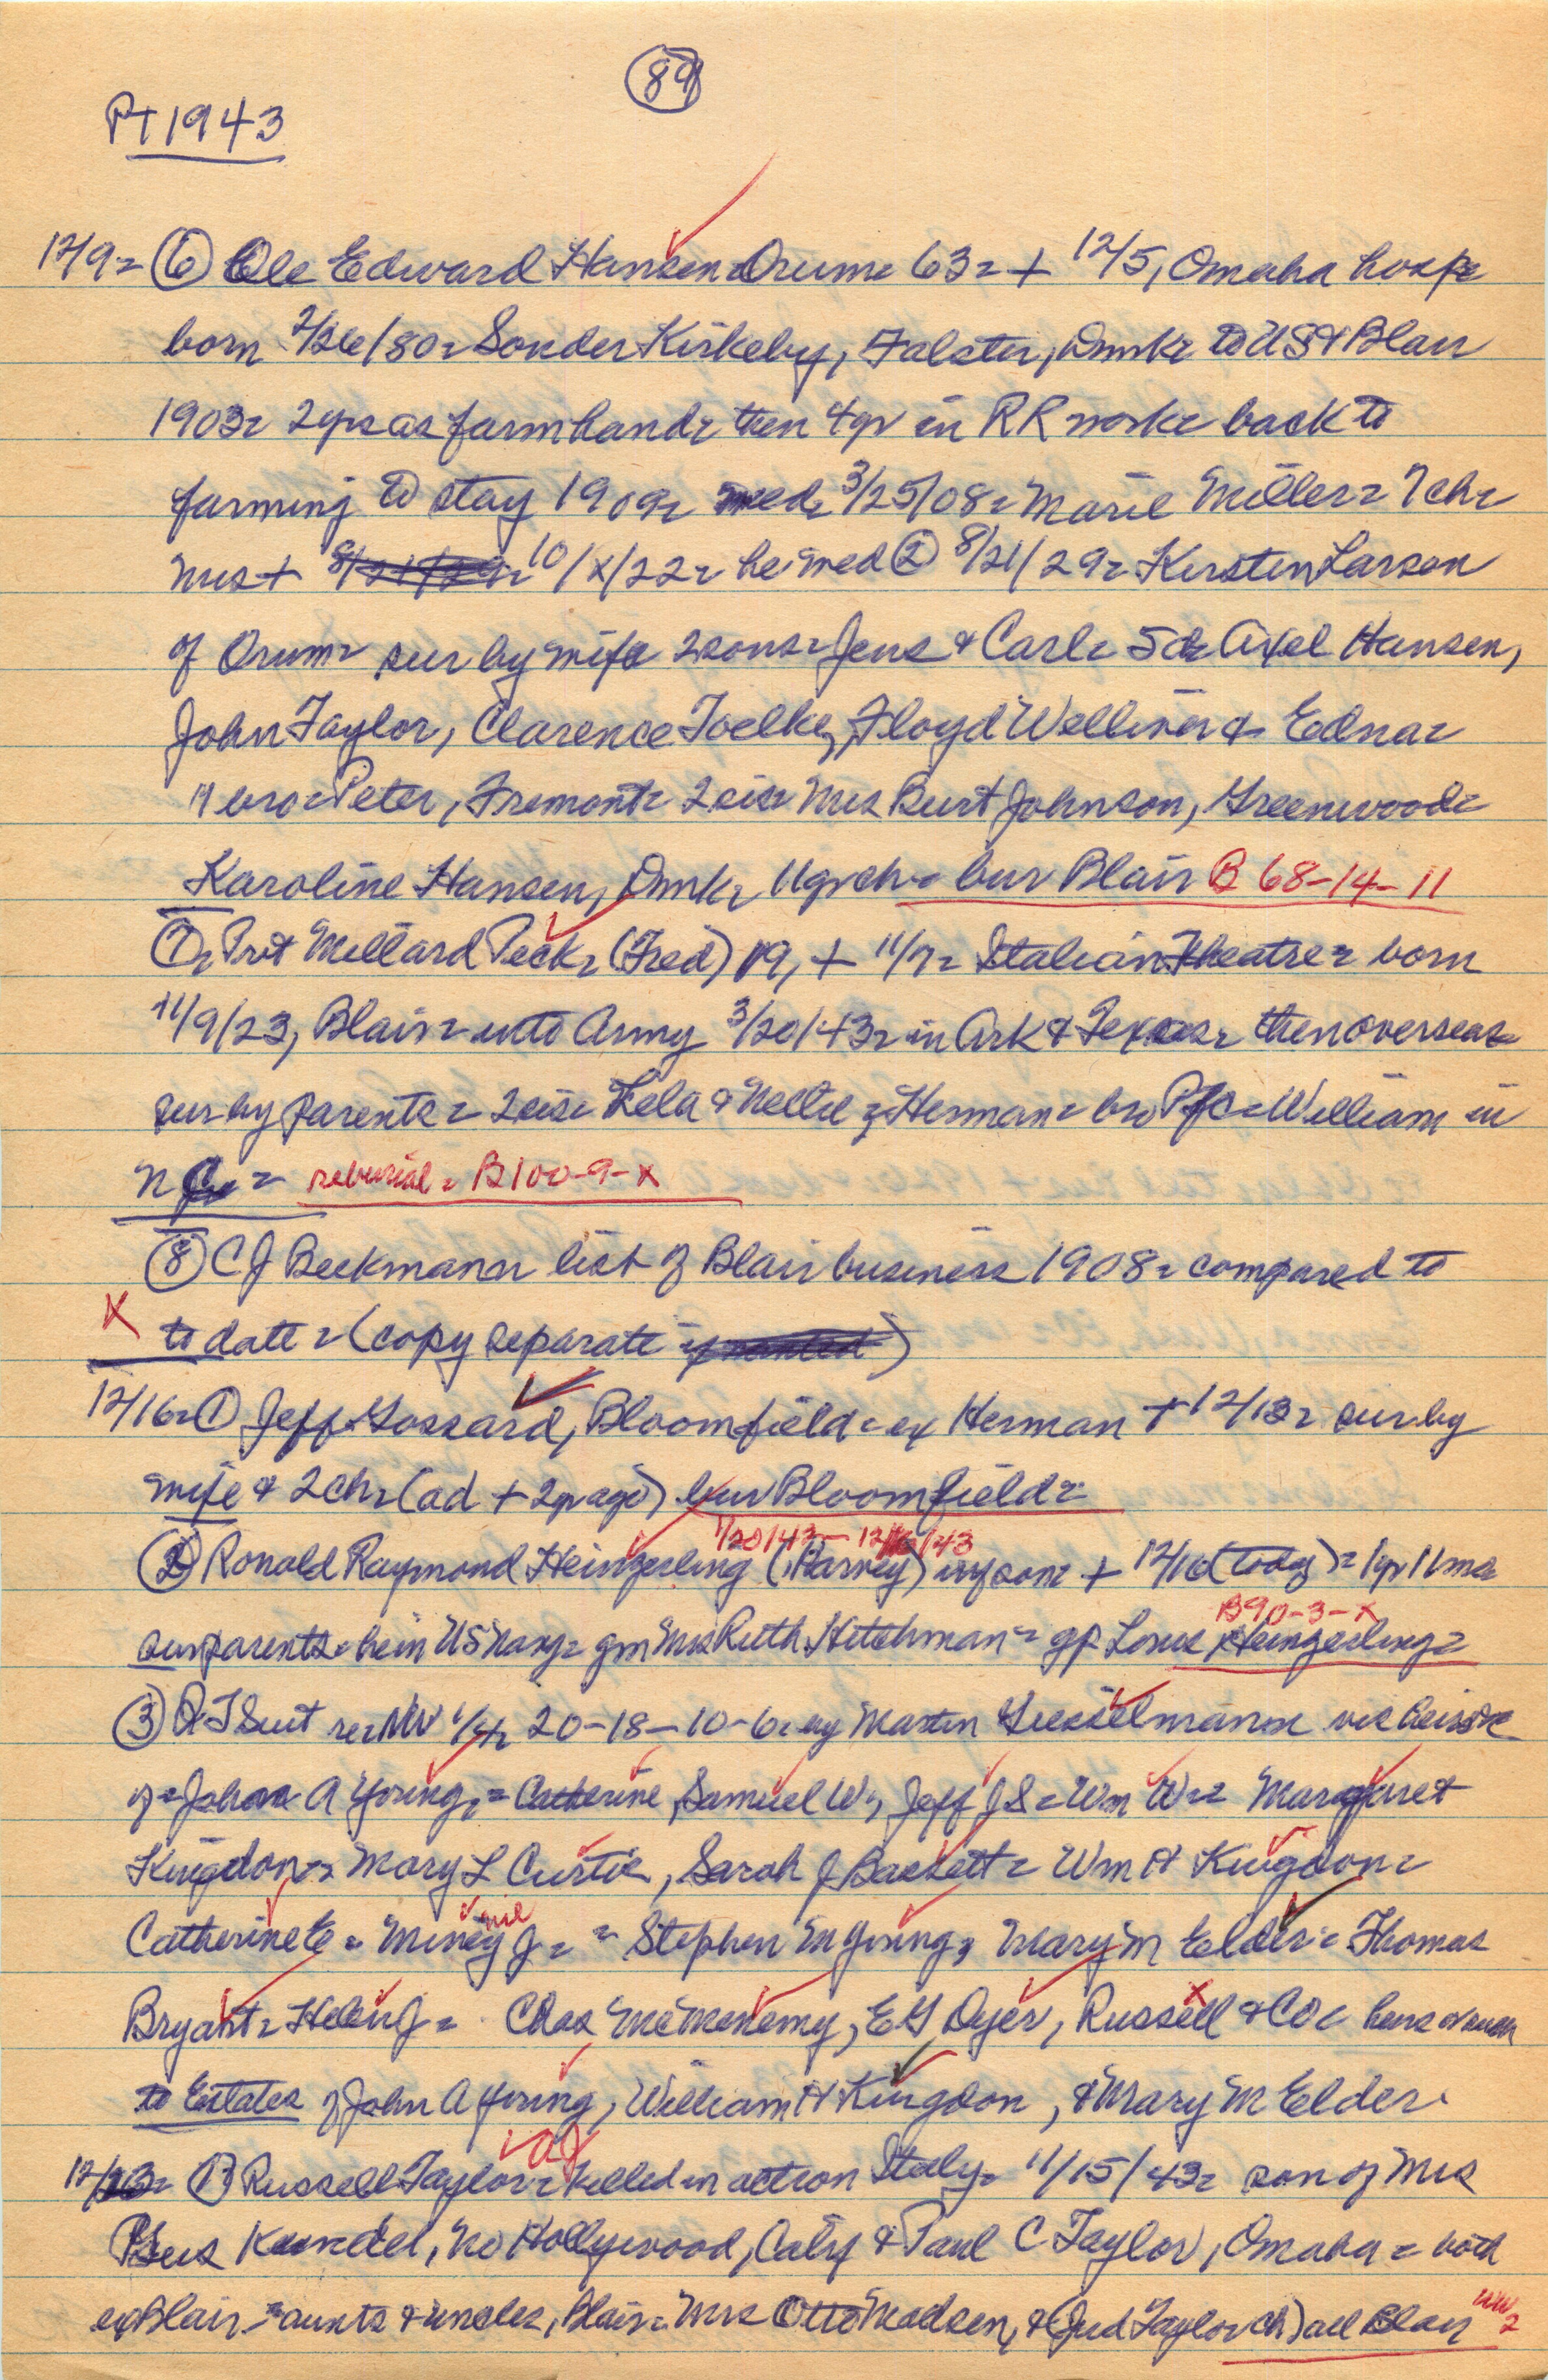 89
PT 1943
12/9= ⑥ Ole Edward Hansen Orum= 63= + 12/5, Omaha hosp=
born 2/26/80= Sonder Kirkeby, Falster, Dmk= to US & Blair
1903= 2 yrs as farmhand= then 4 yr in RR work= back to
farming to stay 1909= med= 3/25/08= Marie Miller= 7 ch=
Mrs + 10/x/22= he med ② 8/21/29= Kirsten Larsen
of Orum= sur by wife 2 sons= Jens & Carl= 5 d= Axel Hansen,
John Taylor, Clarence Toelke, Floyd Welliver & Edna=
1 bro= Peter, Fremont= 2 sis= Mrs Burt Johnson, Greenwood=
Karoline Hansen, Dmk= 11 grch= bur Blair B 68-14-11
⑦= Pvt Millard Peck= (Fred) 19, + 11/7= Italian Theatre= born
11/9/23, Blair= into Army 3/20/43= in Ark & Texas= then overseas
sur by parents= 2 sis= Lela & Nellie= Herman= bro Pfc= William in
N = reburial= B100-9-x
⑧ C J Beekmann list of Blair business 1908= compared to
X to date= (copy separate)
12/16= ① Jeff Gossard, Bloomfield= ex Herman + 12/13= sur by
wife & 2 ch= (ad + 2 yr ago) bur Bloomfield=
1/20/42- 12/16/43
② Ronald Raymond Heingerling (Harvey) son= + 12/16 (today)= 1 yr 11 mo
B90-3-x
sur parents= he in US Navy= gm Mrs Ruth Hitchman= gp Louis Heingerling=
③ Q T Suit re: NW 1/4= 20-18-10-6= by Martin Giesselmann vs heirs
of= John A Young,= Catherine, Samuel W, Jeff J S= Wm W== Margaret
Kingdon= Mary L Curtis, Sarah J Baskett= Wm H Kingdon=
nie
Catherine E= Miney J== Stephen M Young, Mary M Elder= Thomas
Bryant= Helen J= Chas McMenemy, E G Dyer, Russell & Co=
to Estates of John A Young, William H Kingdon, & Mary M Elder=
AJ
12/23= ① Russell Taylor= killed in action Italy= 11/15/43= son of Mrs
Kundel, No Hollywood, Calif & Paul C Taylor, Omaha= both
ex Blair= aunts & uncles, Blair= Mrs Otto Madsen, & (Jud Taylor ch) all Blair WW 2